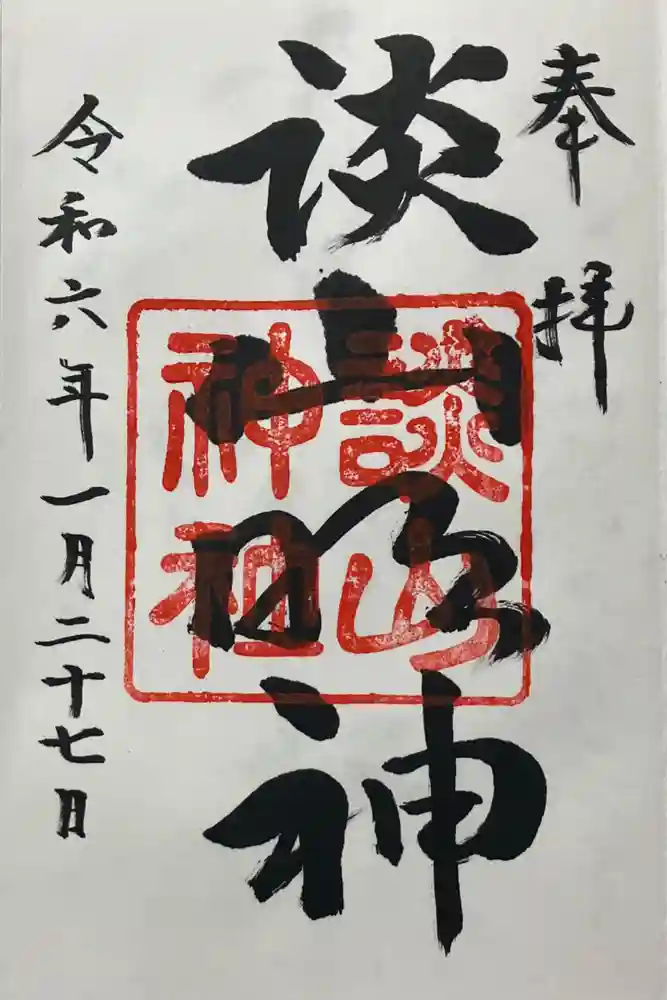 奉拝
談山明神
談山
神社
令和六年一月二十七日